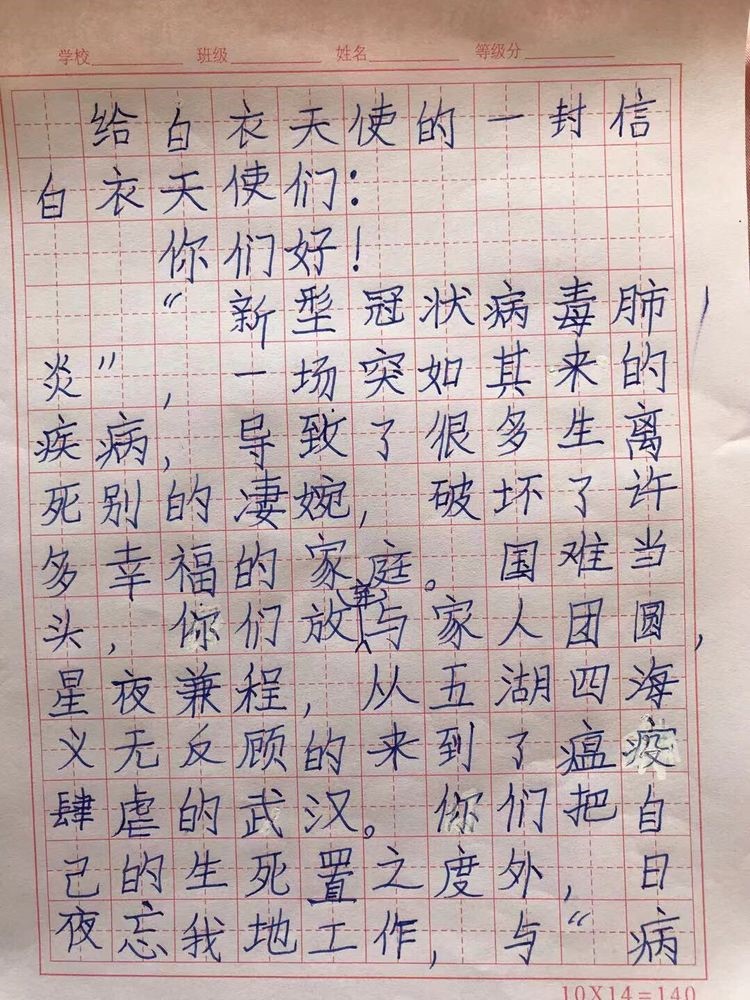 学校 班级 姓名 等级分
给白衣天使的一封信
白衣天使们：
你们好！
“新型冠状病毒肺
炎”，一场突如其来的
疾病，导致了很多生离
死别的凄婉，破坏了许
多幸福的家庭。国难当
头，你们放弃与家人团圆，
星夜兼程，从五湖四海
义无反顾的来到了瘟疫
肆虐的武汉。你们把自
己的生死置之度外，日
夜忘我地工作，与“病
10X14=140